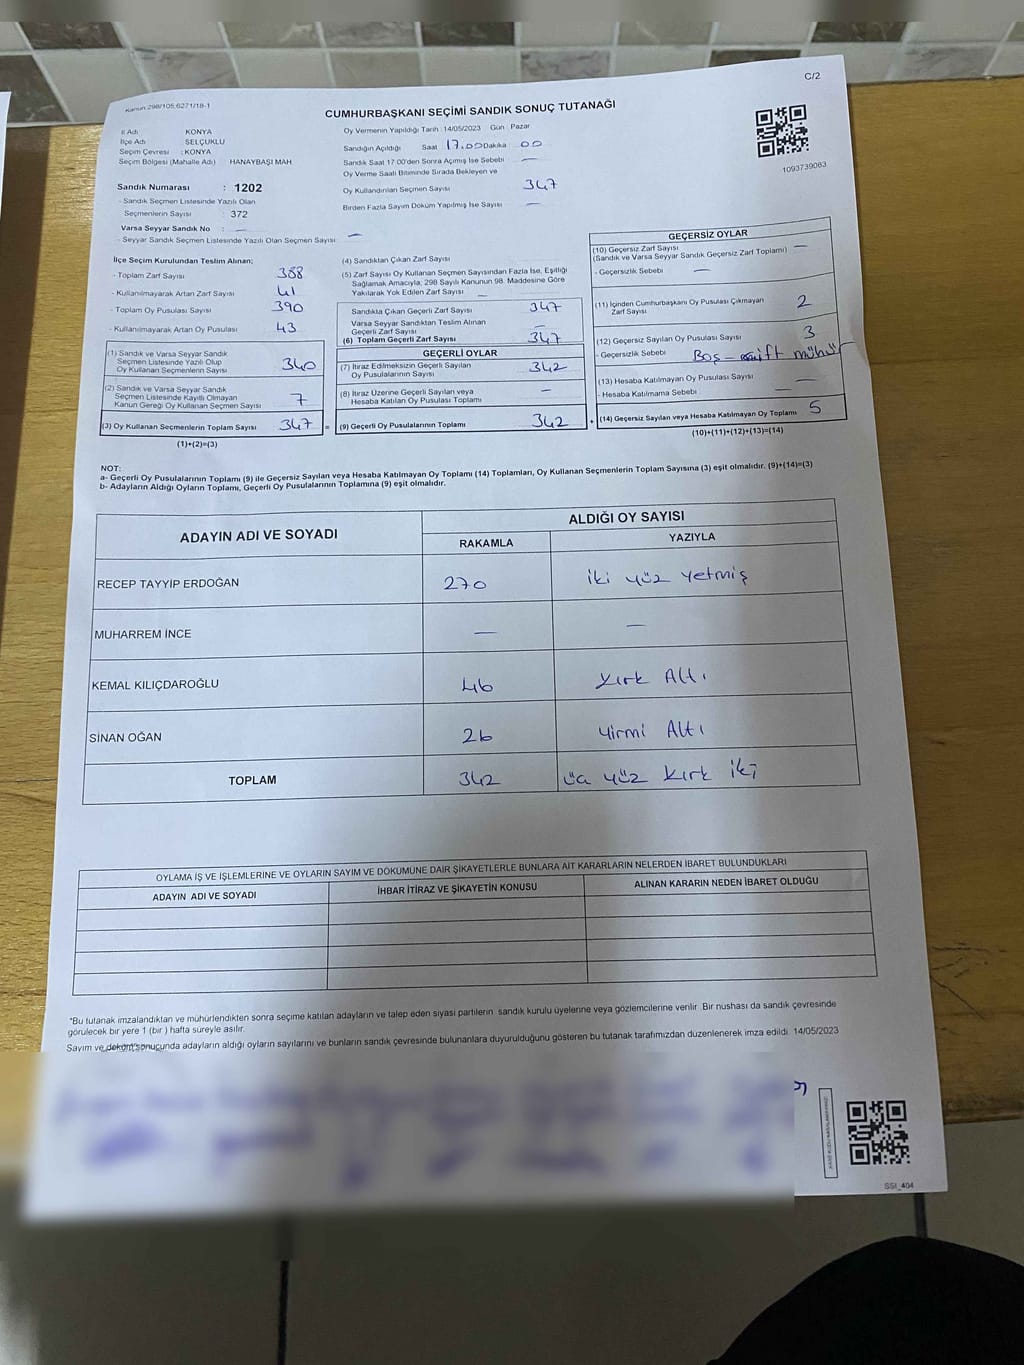 C/2
Kanun 298/105,6271/18-1
CUMHURBAŞKANI SEÇİMİ SANDIK SONUÇ TUTANAĞI
İl Adı KONYA
İlçe Adı SELÇUKLU
Seçim Çevresi : KONYA
Seçim Bölgesi (Mahalle Adı) : HANAYBAŞI MAH.
Sandık Numarası : 1202
- Sandık Seçmen Listesinde Yazılı Olan
Seçmenlerin Sayısı : 372
Varsa Seyyar Sandık No : —
- Seyyar Sandık Seçmen Listesinde Yazılı Olan Seçmen Sayısı : —
Oy Vermenin Yapıldığı Tarih : 14/05/2023 Gün : Pazar
Sandığın Açıldığı Saat 17.00 Dakika 00
Sandık Saat 17:00'den Sonra Açımış İse Sebebi —
Oy Verme Saati Bitiminde Sırada Bekleyen ve
Oy Kullandırılan Seçmen Sayısı 347
Birden Fazla Sayım Döküm Yapılmış İse Sayısı —
1093739083
İlçe Seçim Kurulundan Teslim Alınan;
- Toplam Zarf Sayısı 388
- Kullanılmayarak Artan Zarf Sayısı 41
- Toplam Oy Pusulası Sayısı 390
- Kullanılmayarak Artan Oy Pusulası 43
(1) Sandık ve Varsa Seyyar Sandık
Seçmen Listesinde Yazılı Olup
Oy Kullanan Seçmenlerin Sayısı 340
(2) Sandık ve Varsa Seyyar Sandık
Seçmen Listesinde Kayıtlı Olmayan
Kanun Gereği Oy Kullanan Seçmen Sayısı 7
(3) Oy Kullanan Seçmenlerin Toplam Sayısı 347 =
(1)+(2)=(3)
(4) Sandıktan Çıkan Zarf Sayısı
(5) Zarf Sayısı Oy Kullanan Seçmen Sayısından Fazla İse, Eşitliği
Sağlamak Amacıyla, 298 Sayılı Kanunun 98. Maddesine Göre
Yakılarak Yok Edilen Zarf Sayısı —
Sandıkta Çıkan Geçerli Zarf Sayısı 347
Varsa Seyyar Sandıktan Teslim Alınan
Geçerli Zarf Sayısı —
(6) Toplam Geçerli Zarf Sayısı 347
GEÇERLİ OYLAR
(7) İtiraz Edilmeksizin Geçerli Sayılan
Oy Pusulalarının Sayısı 342
(8) İtiraz Üzerine Geçerli Sayılan veya
Hesaba Katılan Oy Pusulası Toplamı —
(9) Geçerli Oy Pusulalarının Toplamı 342 +
GEÇERSİZ OYLAR
(10) Geçersiz Zarf Sayısı
(Sandık ve Varsa Seyyar Sandık Geçersiz Zarf Toplamı) —
- Geçersizlik Sebebi —
(11) İçinden Cumhurbaşkanı Oy Pusulası Çıkmayan
Zarf Sayısı 2
(12) Geçersiz Sayılan Oy Pusulası Sayısı 3
- Geçersizlik Sebebi Boş - çift mühür
(13) Hesaba Katılmayan Oy Pusulası Sayısı —
- Hesaba Katılmama Sebebi —
(14) Geçersiz Sayılan veya Hesaba Katılmayan Oy Toplamı 5
(10)+(11)+(12)+(13)=(14)
NOT:
a- Geçerli Oy Pusulalarının Toplamı (9) ile Geçersiz Sayılan veya Hesaba Katılmayan Oy Toplamı (14) Toplamları, Oy Kullanan Seçmenlerin Toplam Sayısına (3) eşit olmalıdır. (9)+(14)=(3)
b- Adayların Aldığı Oyların Toplamı, Geçerli Oy Pusulalarının Toplamına (9) eşit olmalıdır.
ADAYIN ADI VE SOYADI ALDIĞI OY SAYISI
RAKAMLA YAZIYLA
RECEP TAYYİP ERDOĞAN 270 iki yüz yetmiş
MUHARREM İNCE — —
KEMAL KILIÇDAROĞLU 46 Kırk Altı
SİNAN OĞAN 26 Yirmi Altı
TOPLAM 342 üç yüz kırk iki
OYLAMA İŞ VE İŞLEMLERİNE VE OYLARIN SAYIM VE DÖKÜMÜNE DAİR ŞİKAYETLERLE BUNLARA AİT KARARLARIN NELERDEN İBARET BULUNDUKLARI
ADAYIN ADI VE SOYADI İHBAR İTİRAZ VE ŞİKAYETİN KONUSU ALINAN KARARIN NEDEN İBARET OLDUĞU
*Bu tutanak imzalandıktan ve mühürlendikten sonra seçime katılan adayların ve talep eden siyasi partilerin sandık kurulu üyelerine veya gözlemcilerine verilir. Bir nushası da sandık çevresinde
görülecek bir yere 1 (bir ) hafta süreyle asılır.
Sayım ve dekont sonucunda adayların aldığı oyların sayılarını ve bunların sandık çevresinde bulunanlara duyurulduğunu gösteren bu tutanak tarafımızdan düzenlenerek imza edildi. 14/05/2023
SSİ_404